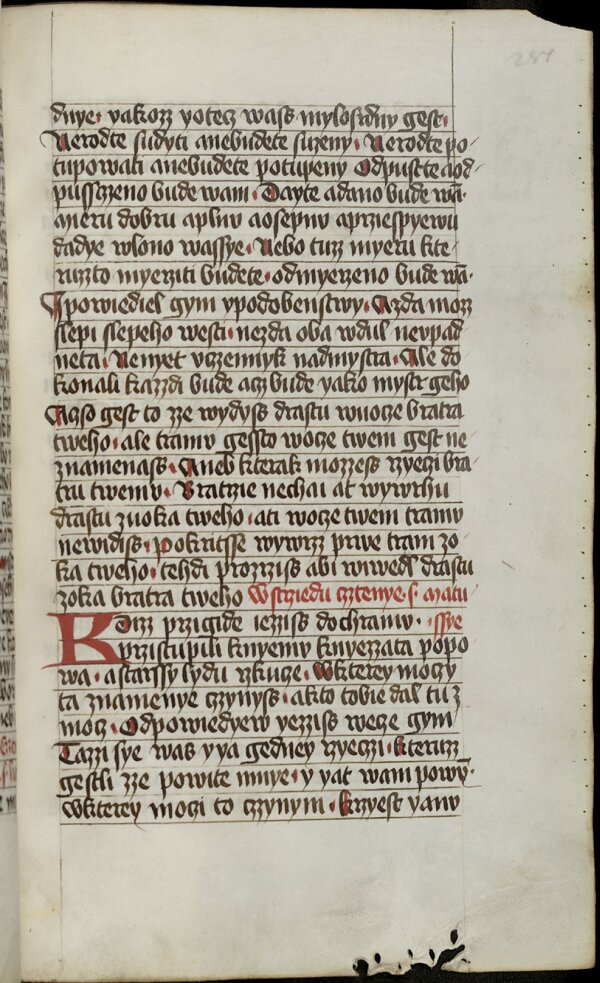 284
dnye· yakozz yotecz wass mylosrdny gest·
Nerodte sudyti anebudete suzeny· Nerodte po-
tupowati anebudete potupeny Odpusttte aod-
pusstzeno bude wam· Dayte adano bude wā·
aneru dobru aplnu aosepnu aprziespyewu
dadye wlono wassye· Nebo tuzz myeru kte-
ruzzto myerziti budete· odmyerzeno bude wā·
Ipowiediel gym ypodobenstwy· Azda mozz
slepi slepeho westi· nezda oba wdul neupad
neta· Nenyet uczennyk nadmystra· Ale do
konali kazzdi bude acz bude yako mystr geho
Aczso gest to zze wydyss drastu wuocze bratra
tweho· ale tramu gessto wocze twem gest ne
znamenass· Aneb kterak mozzess rzyeczi bra-
tru twemu· Bratrzie nechai at wywrhu
drastu zuoka tweho· ati wocze twem tramu
newidiss· Pokritsse wywrz prwe tram zo-
ka tweho· tehdi prozrziss abi wiwedl drastu
zoka bratra tweho Wstrziedu cztenye· s· matu-
Kdizz przigide iezziss dochramu· ssye
przistupili knyemu knyezzata popo
wa· astarssy lydu rzkucze· Wkterey moczy
ta znamenye czynyss· akto tobie dal tuz
mocz· Odpowiedyew yezziss wece gym
Tazzi sye was yya gedney rzyeczi· kteruzz
gestli zze powite mnye· y yat wam powy·
wkterey moczi to czynym· krzyest yanu